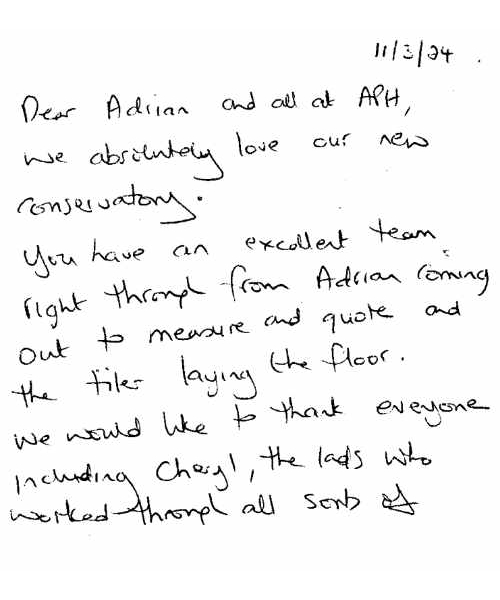 11/3/24.
Dear Adrian and all at APH,
we absolutely love our new
conservatory.
You have an excellent team,
right through from Adrian coming
out to measure and quote and
the tiler laying the floor.
We would like to thank everyone
including Cheryl, the lads who
worked through all sorts of